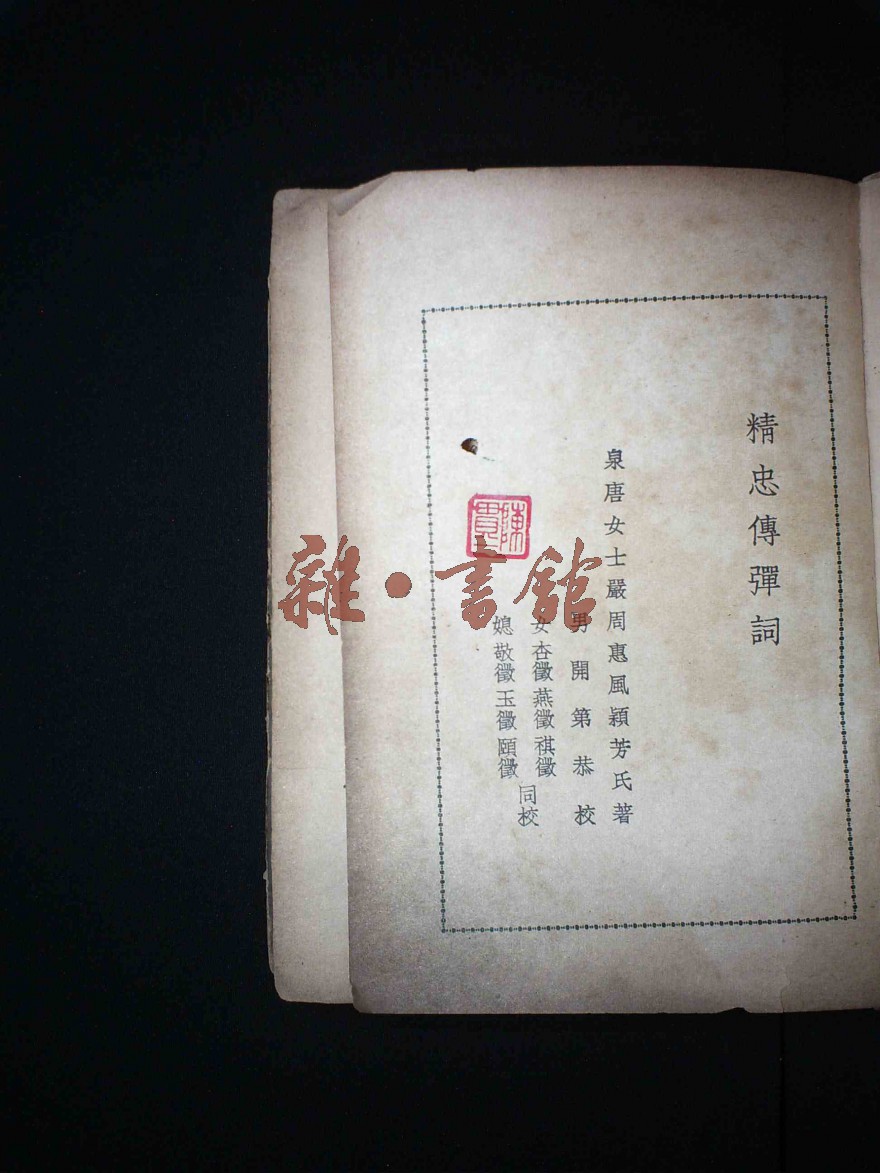 精忠傳彈詞
泉唐女士嚴周惠風穎芳氏著
男開第恭校
女杏徵燕徵祺徵
媳敬徵玉徵頤徵
同校
陳
雜·書館